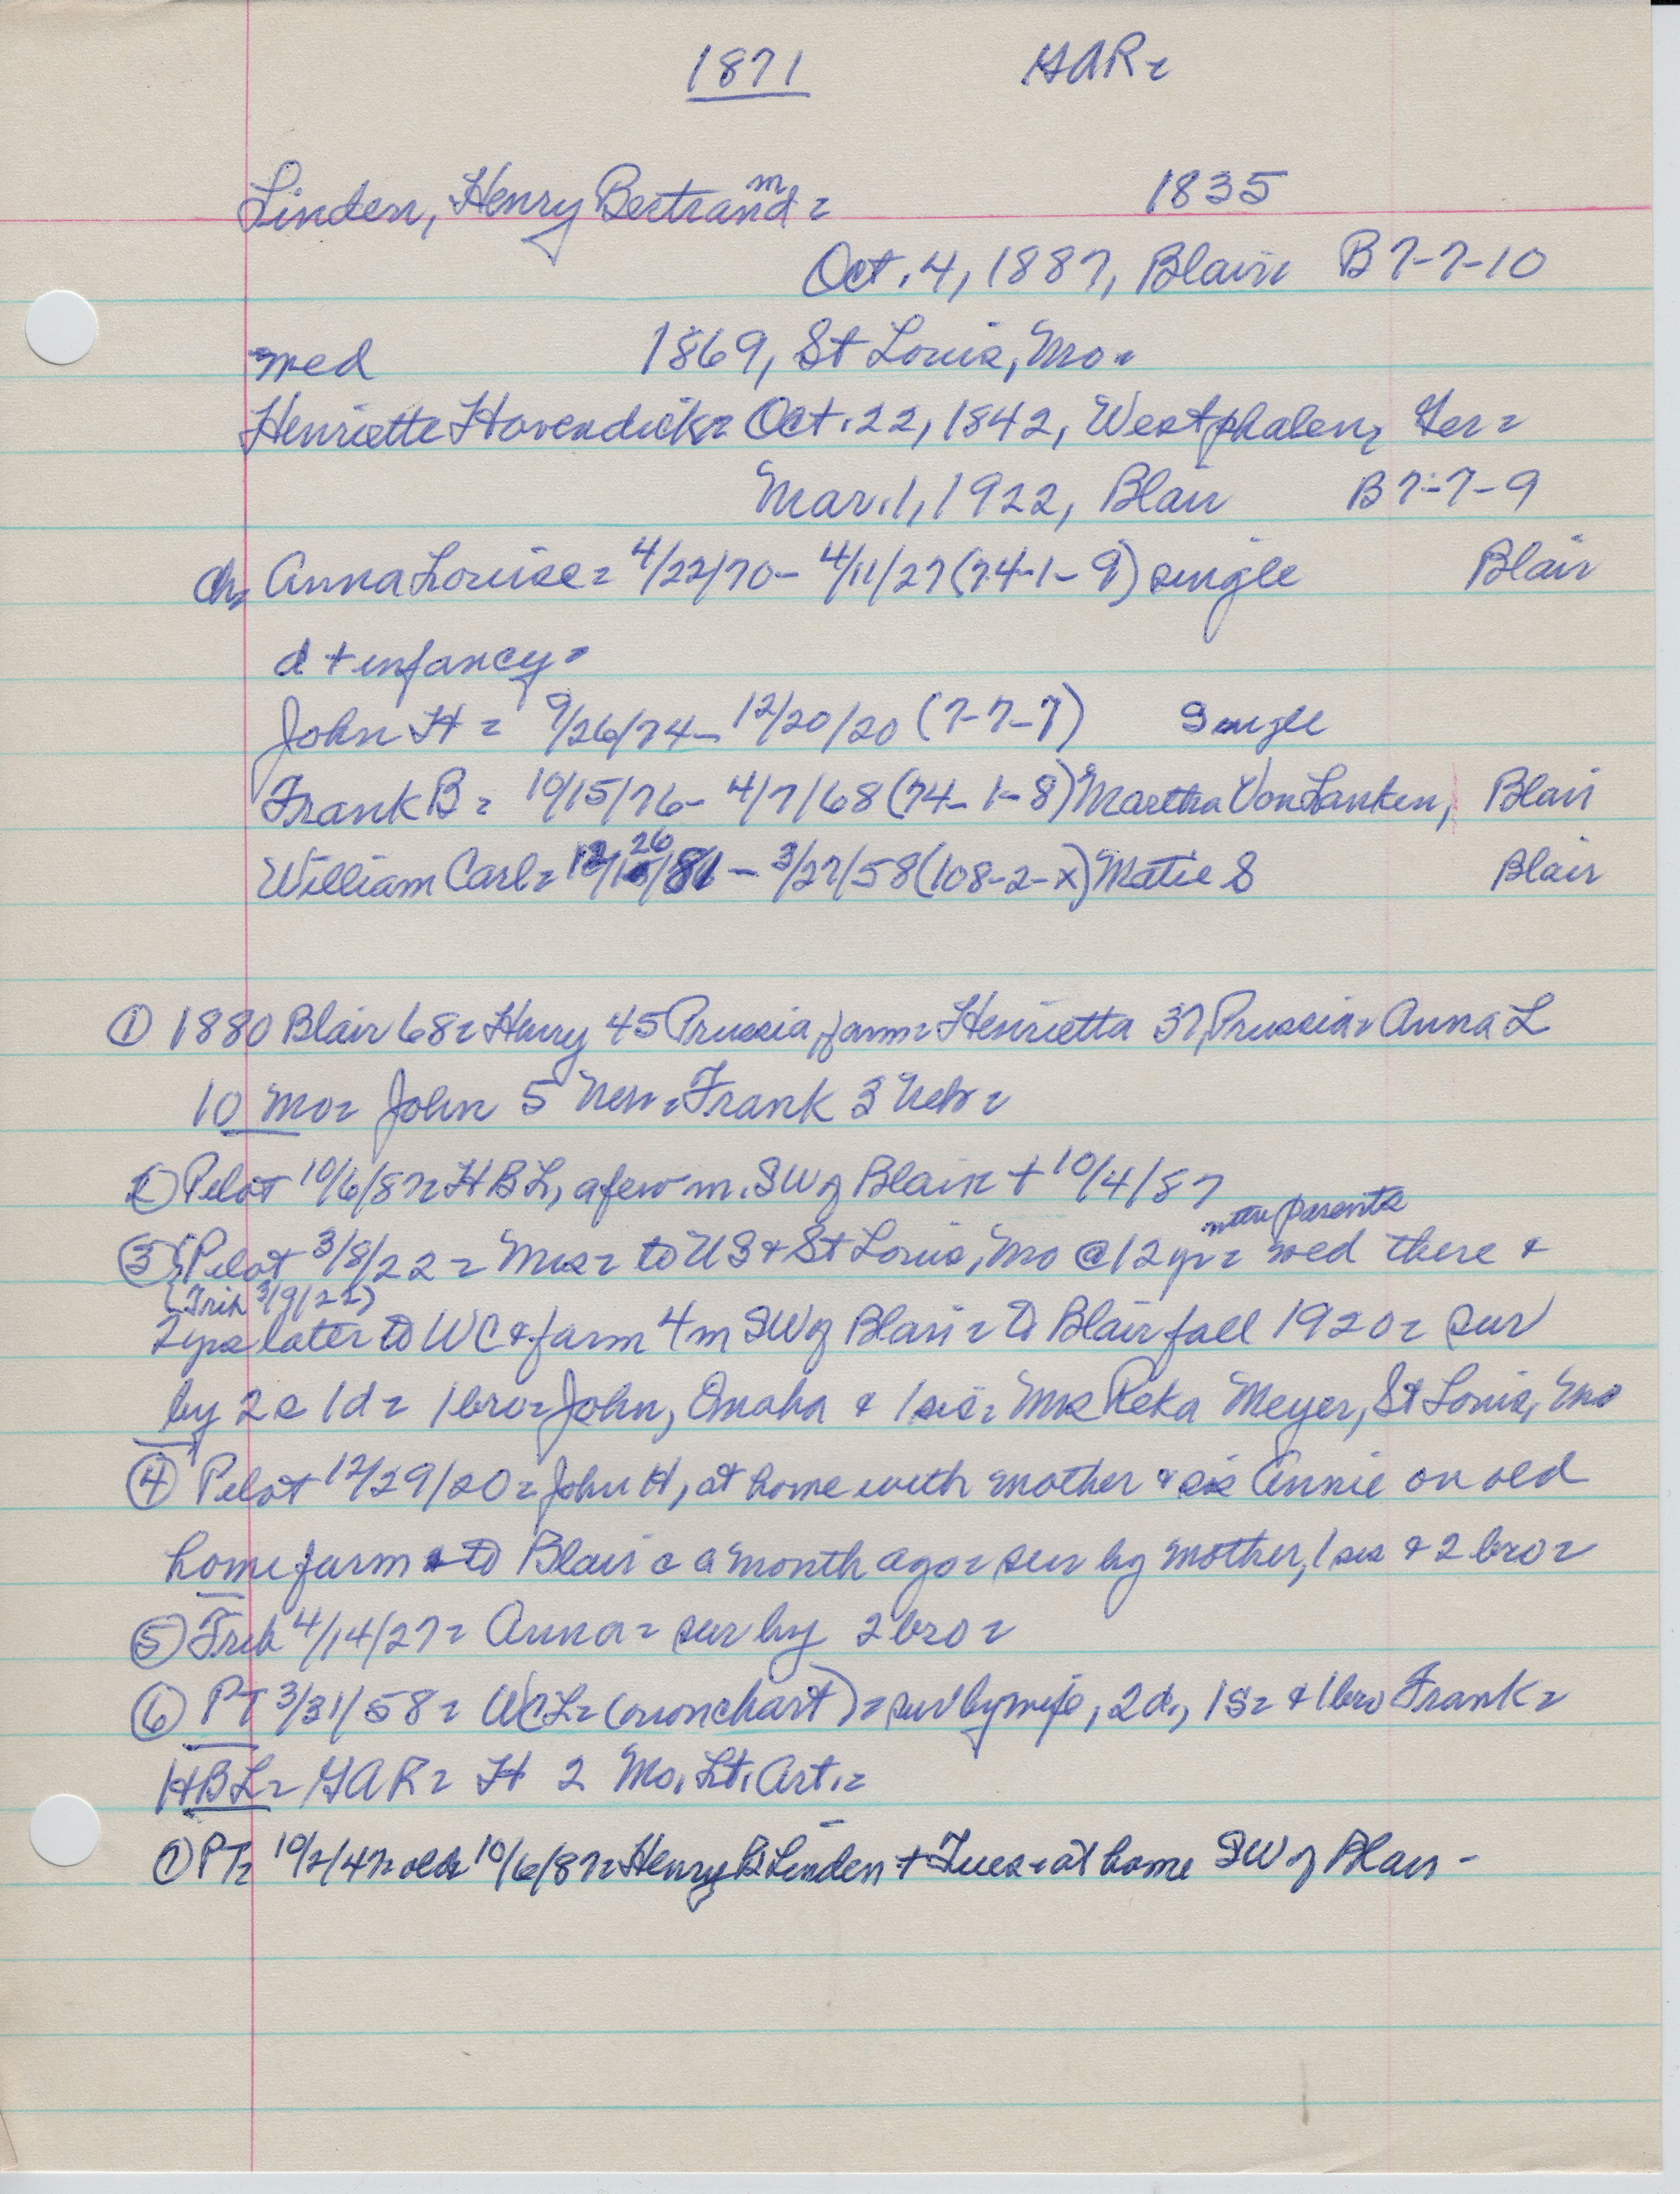 1871 GAR=
Linden, Henry Bertrand= 1835
m
Oct. 4, 1887, Blair B7-7-10
wed 1869, St Louis, Mo=
Henriette Havendick= Oct. 22, 1842, Westphalen, Ger=
Mar. 1, 1922, Blair B7-7-9
ch= Anna Louise= 4/22/70- 4/11/27(74-1-9) single Blair
d + infancy=
John H= 9/26/74- 12/20/20 (7-7-7) Single
Frank B= 10/15/76- 4/7/68(74-1-8) Martha Von Lanken, Blair
26
William Carl= 12/ /81 - 3/27/58(108-2-x) Matie S Blair
① 1880 Blair 68= Harry 45 Prussia, farm= Henrietta 37, Prussia= Anna L
10 Mo= John 5 Neb= Frank 3 Neb=
② Pilot 10/6/87= HBL, a few m. SW of Blair + 10/4/87
with parents
③ Pilot 3/8/22= Mrs= to US & St Louis, Mo @ 12 yr= wed there &
(Trib 3/9/22)
2 yrs later to WC & farm 4 m SW of Blair= to Blair fall 1920= sur
by 2s 1d= 1 bro= John, Omaha & 1 sis= Mrs Reka Meyer, St Louis, Mo
④ Pilot 12/29/20= John H, at home with mother & sis Annie on old
home farm & to Blair c a month ago= sur by mother, 1 sis & 2 bro=
⑤ Trib 4/14/27= Anna= sur by 2 bro=
⑥ PT 3/31/58= WCL= (own chart)= sur by wife, 2d, 1s= & 1 bro Frank=
HBL= GAR= H 2 Mo. Lt. Art.=
⑦ PT= 10/2/47= old= 10/6/87= Henry B Linden + Tues= at home SW of Blair-